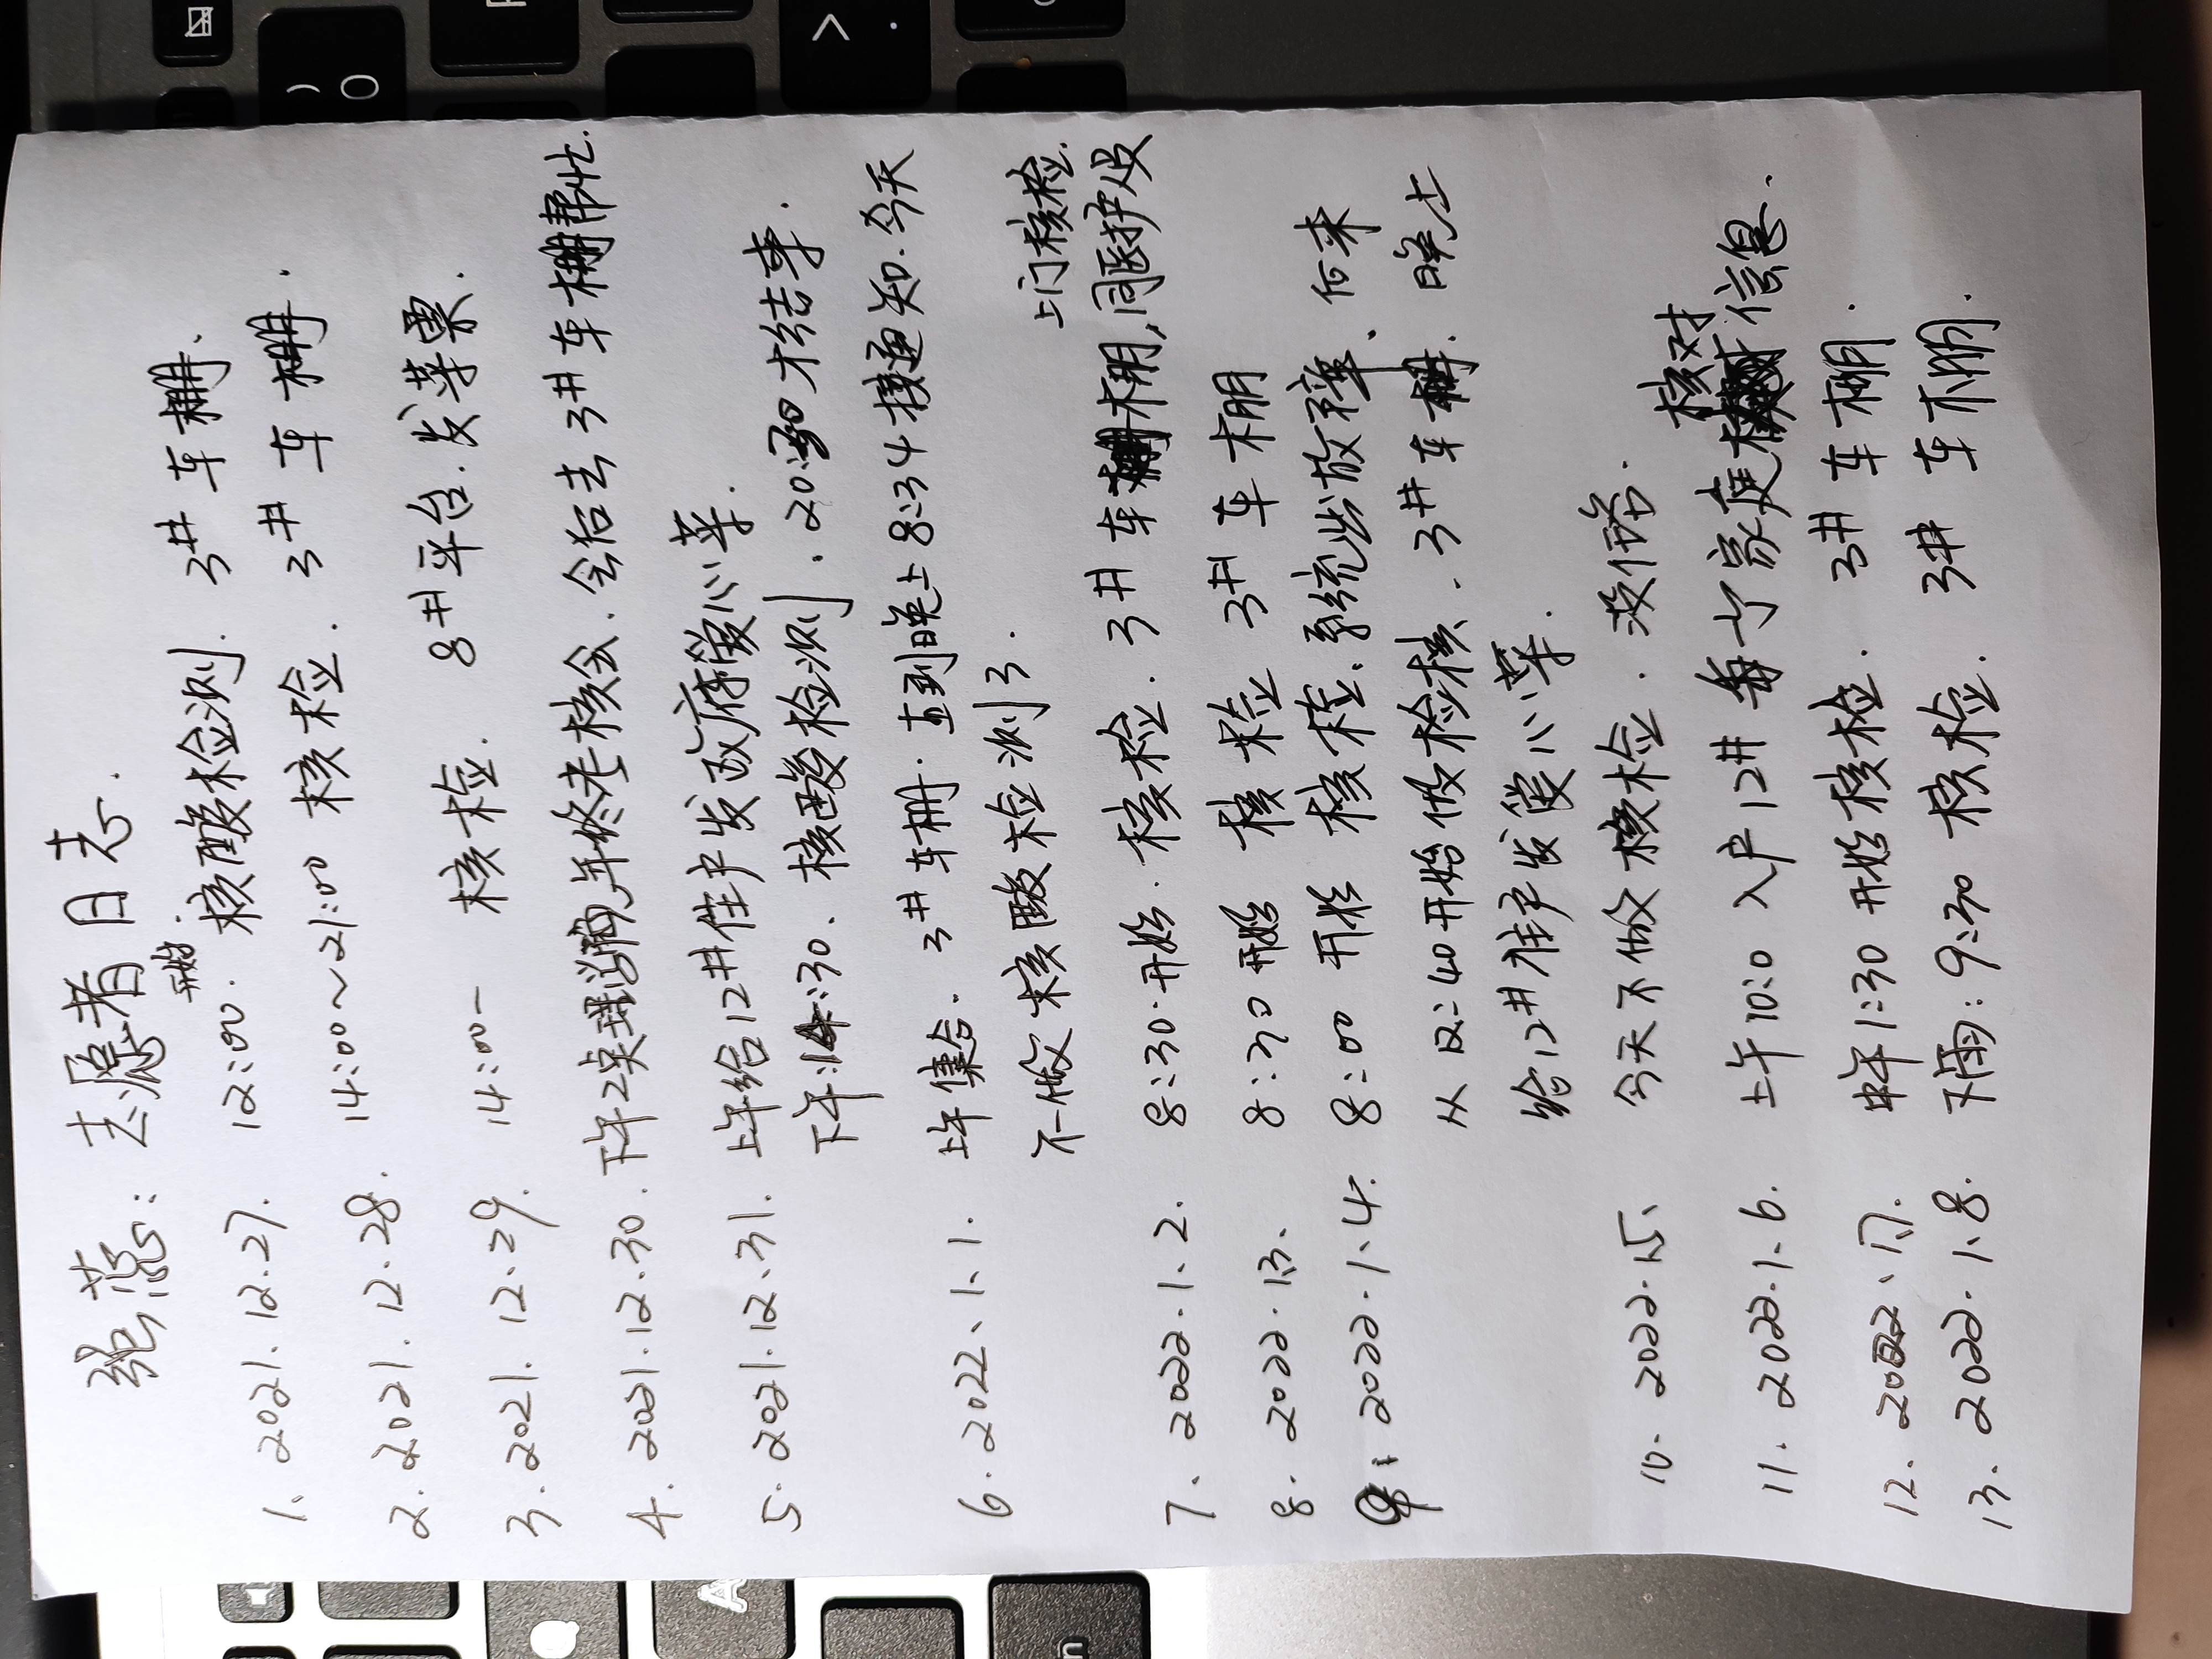 张燕：志愿者日志.
开始.
1、2021.12.27. 12:00. 核酸检测. 3# 车棚.
2.2021.12.28. 14:00~21:00 核检. 3# 车棚.
3.2021.12.29. 14:00— 核检. 8#平台.发苹果.
4.2021.12.30.下午2 年终考核会.会后去3#车棚帮忙.
5.2021.12.31.上午给12#住户发政府爱心菜.
下午:14:30、核酸检测.20:30才结束.
6.2022.1、1. 上午集合. 3#车棚.直到晚上8:34接通知.今天
不做核酸检测了.
上门核检.
7、2022.1.2. 8:30.开始.核检. 3#车棚,同医护及
8.2022.1.3、 8:30开始 核检 3# 车棚
9:2022.1.4. 8:00 开始 核检.系统出故障.后来
从12:40开始做检核、3#车棚.晚上
给12#住户发爱心菜.
10.2022.1.5、 今天不做核检.没信.
核对
11.2022.1.6. 上午10:0入户12#每个家庭信息.
12.2022、1.7. 中午1:30开始核检. 3# 车棚.
13.2022.1.8. 下雨:9:30 核检. 3# 车棚.